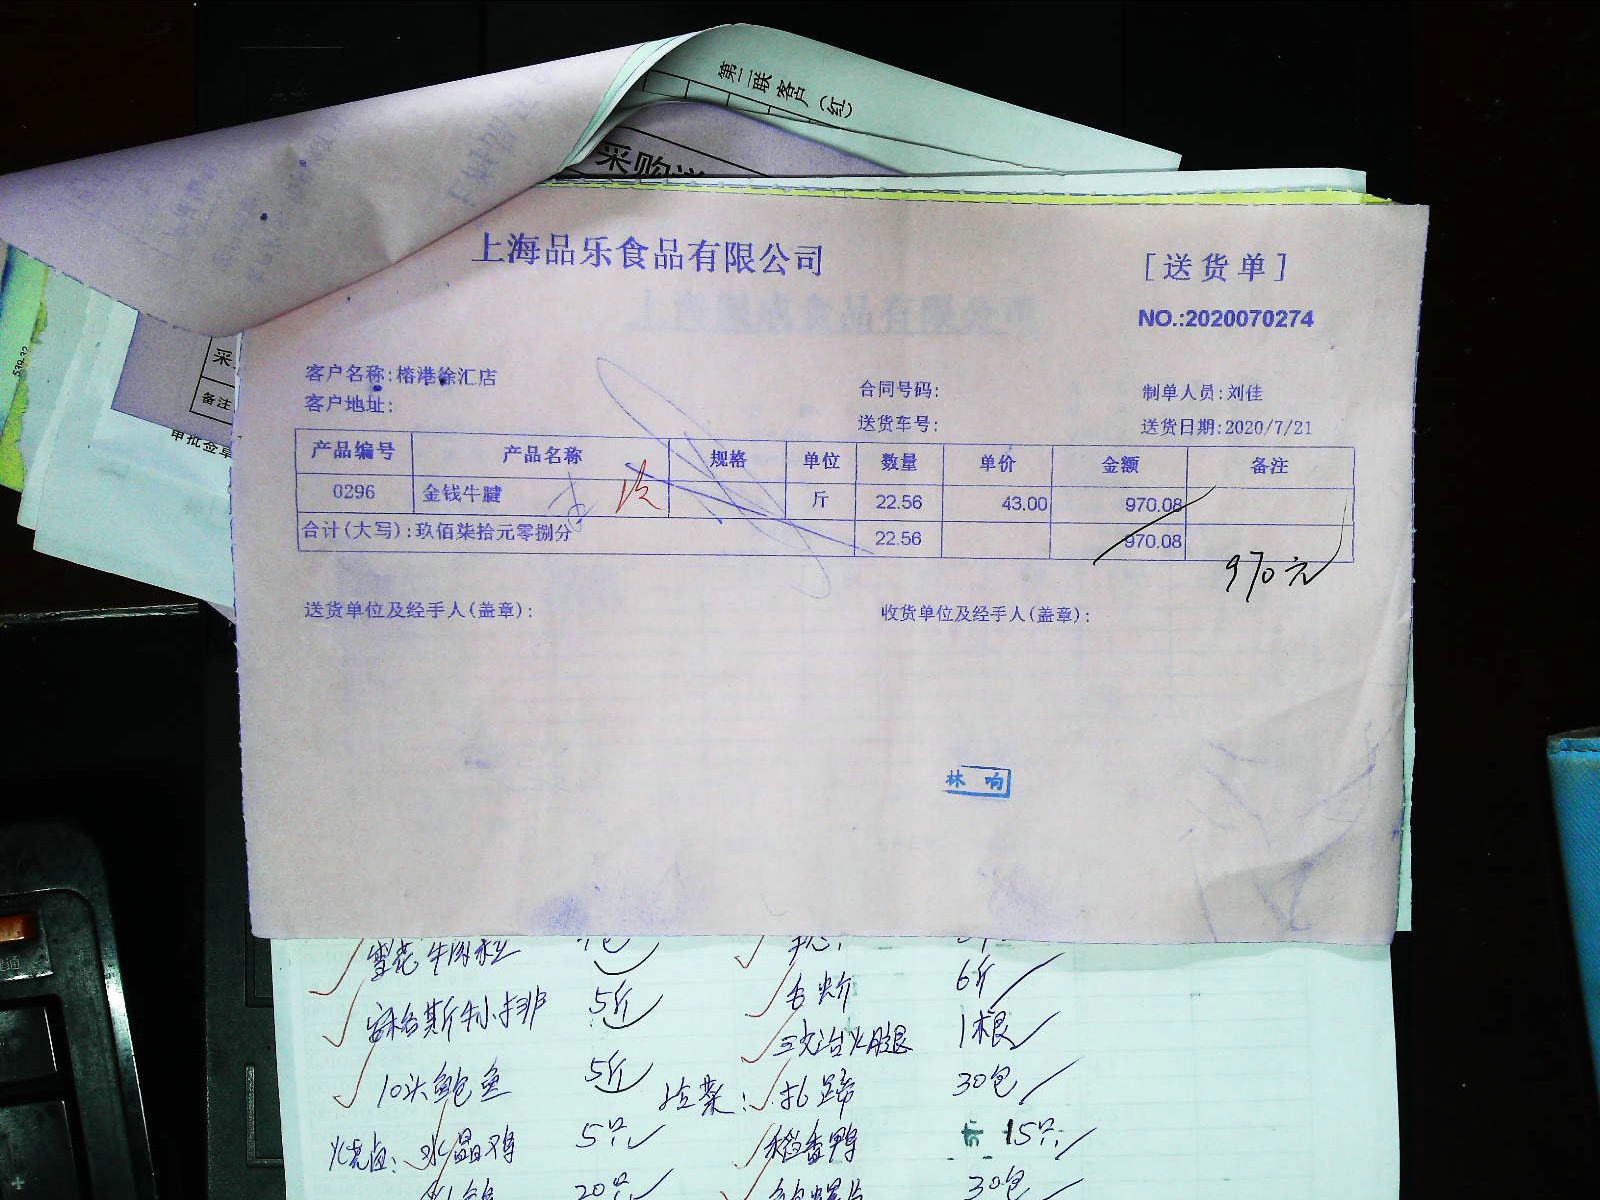 第二联客户(红)
采购
上海品乐食品有限公司
[送货单]
NO.:2020070274
539.32
采
备注
审批签章
客户名称:榕港徐汇店
客户地址:
合同号码:
送货车号:
制单人员:刘佳
送货日期:2020/7/21
产品编号 产品名称 规格 单位 数量 单价 金额 备注
0296 金钱牛腱 斤 22.56 43.00 970.08
合计(大写):玖佰柒拾元零捌分 22.56 970.08
970元
送货单位及经手人(盖章):
收货单位及经手人(盖章):
林响
雪花牛肉粒
5斤
6斤
三文治火腿 1根
10头鲍鱼 5斤
扎蹄 30包
水晶鸡 5只
稻香鸭 15只
20只
30包